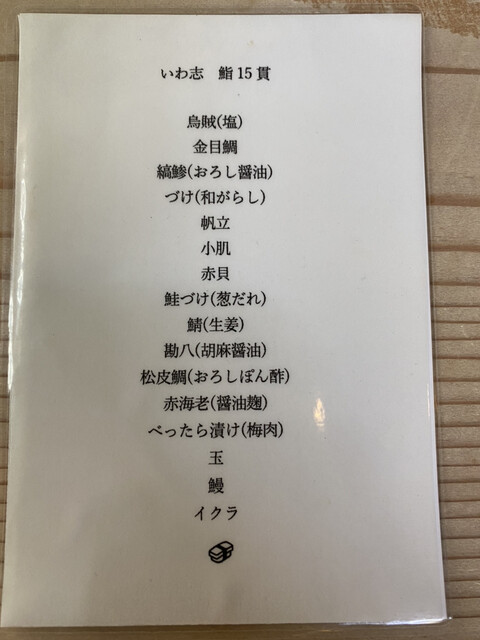 いわ志　鮨15貫
烏賊(塩)
金目鯛
縞鯵(おろし醤油)
づけ(和がらし)
帆立
小肌
赤貝
鮭づけ(葱だれ)
鯖(生姜)
勘八(胡麻醤油)
松皮鯛(おろしぽん酢)
赤海老(醤油麹)
べったら漬け(梅肉)
玉
鰻
イクラ